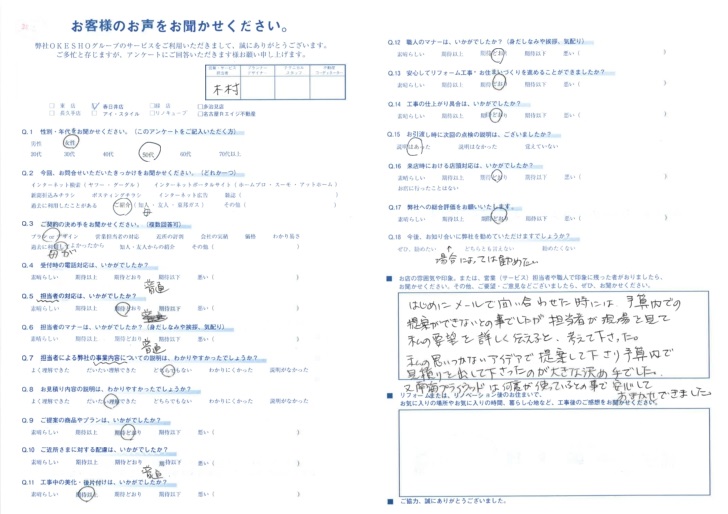 お客様のお声をお聞かせください。
弊社OKESHOグループのサービスをご利用いただきまして、誠にありがとうございます。
ご多忙と存じますが、アンケートにご回答いただきます様お願い申し上げます。
木村
□東店 ☑春日井店 □緑店 □多治見店
□長久手店 □アイ・スタイル □リノキューブ □名古屋ウエイン不動産
Q.1 性別・年代をお聞かせください。(このアンケートをご記入いただく方)
男性 女性
20代 30代 40代 50代 60代 70代以上
Q.2 今回、お問合せいただいたきっかけをお聞かせください。(どれか一つ)
インターネット検索(ヤフー・グーグル) インターネットポータルサイト(ホームプロ・スーモ・アットホーム)
新聞折込みチラシ ポスティングチラシ インターネット広告 雑誌( )
過去に利用したことがある ご紹介(知人・友人・東邦ガス) その他( )
母
Q.3 ご契約の決め手をお聞かせください。(複数回答可)
プラン・デザイン 営業担当者の対応 近所の評判 会社の実績 価格 わかり易さ
過去に利用してよかったから 知人・友人からの紹介 その他( )
母が
Q.4 受付時の電話対応は、いかがでしたか?
素晴らしい 期待以上 期待どおり 期待以下 悪い( )
普通
Q.5 担当者の対応は、いかがでしたか?
素晴らしい 期待以上 期待どおり 期待以下 悪い( )
Q.6 担当者のマナーは、いかがでしたか?(身だしなみや挨拶、気配り)
素晴らしい 期待以上 期待どおり 期待以下 悪い( )
普通
Q.7 担当者による弊社の事業内容についての説明は、わかりやすかったでしょうか?
よく理解できた だいたい理解できた どちらでもない わかりにくかった 説明がなかった
Q.8 お見積り内容の説明は、わかりやすかったでしょうか?
よく理解できた だいたい理解できた どちらでもない わかりにくかった 説明がなかった
Q.9 ご提案の商品やプランは、いかがでしたか?
素晴らしい 期待以上 期待どおり 期待以下 悪い( )
Q.10 ご近所さまに対する配慮は、いかがでしたか?
素晴らしい 期待以上 期待どおり 期待以下 悪い( )
普通
Q.11 工事中の美化・後片付けは、いかがでしたか?
素晴らしい 期待以上 期待どおり 期待以下 悪い( )
Q.12 職人のマナーは、いかがでしたか?(身だしなみや挨拶、気配り)
素晴らしい 期待以上 期待どおり 期待以下 悪い( )
Q.13 安心してリフォーム工事・お住まいづくりを進めることができましたか?
素晴らしい 期待以上 期待どおり 期待以下 悪い( )
Q.14 工事の仕上がり具合は、いかがでしたか?
素晴らしい 期待以上 期待どおり 期待以下 悪い( )
Q.15 お引渡し時に次回の点検の説明は、ございましたか?
説明はあった 説明はなかった 覚えていない
Q.16 来店時における店頭対応は、いかがでしたか?
素晴らしい 期待以上 期待どおり 期待以下 悪い( )
お店に行ったことはない
Q.17 弊社への総合評価をお願いいたします。
素晴らしい 期待以上 期待どおり 期待以下 悪い( )
Q.18 今後、お知り合いに弊社を勧めていただけますでしょうか?
ぜひ、勧めたい どちらとも言えない 勧めたくない
場合によっては勧めたい。
■ お店の雰囲気や印象、または、営業(サービス)担当者や職人で印象に残った者がおりましたら、
お聞かせください。その他、ご要望・ご意見などございましたら、ぜひ、お聞かせください。
はじめにメールで問い合わせた時には、予算内での
提案ができないとの事でしたが担当者が現場を見て
私の要望を詳しく伝えると、考えて下さった。
私の思いつかないアイデアで提案して下さり予算内で
見積りを出して下さったのが大きな決め手でした。
■ リフォームまたは、リノベーション後のお住まいで、
お気に入りの場所やお気に入りの時間、暮らし心地など、工事後のご感想をお聞かせください。
■ ご協力、誠にありがとうございました。